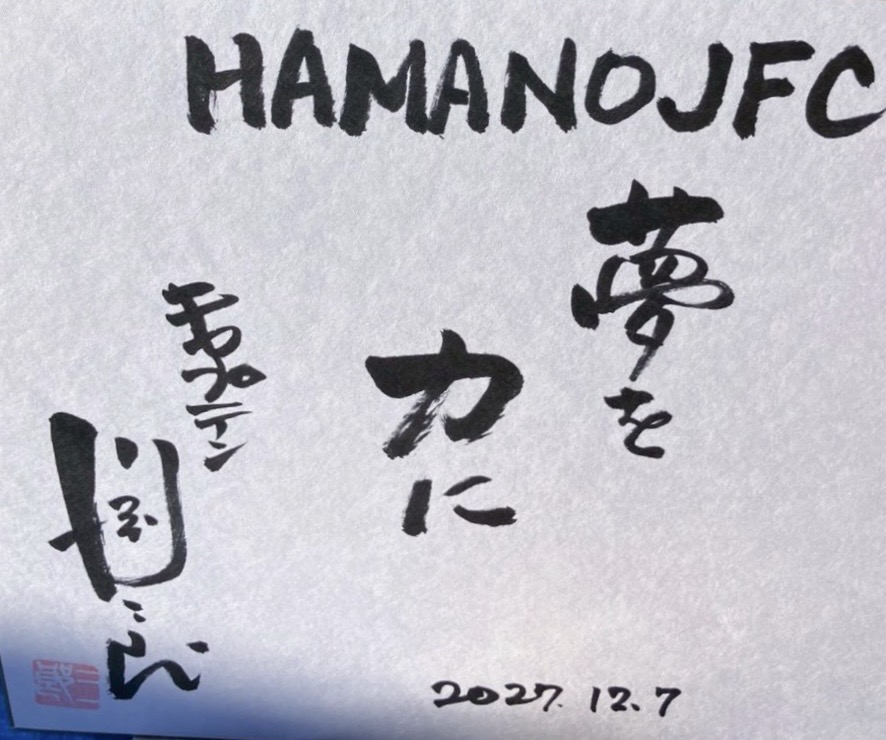 HAMANOJFC
夢を
力に
キャプテン
2027.12.7